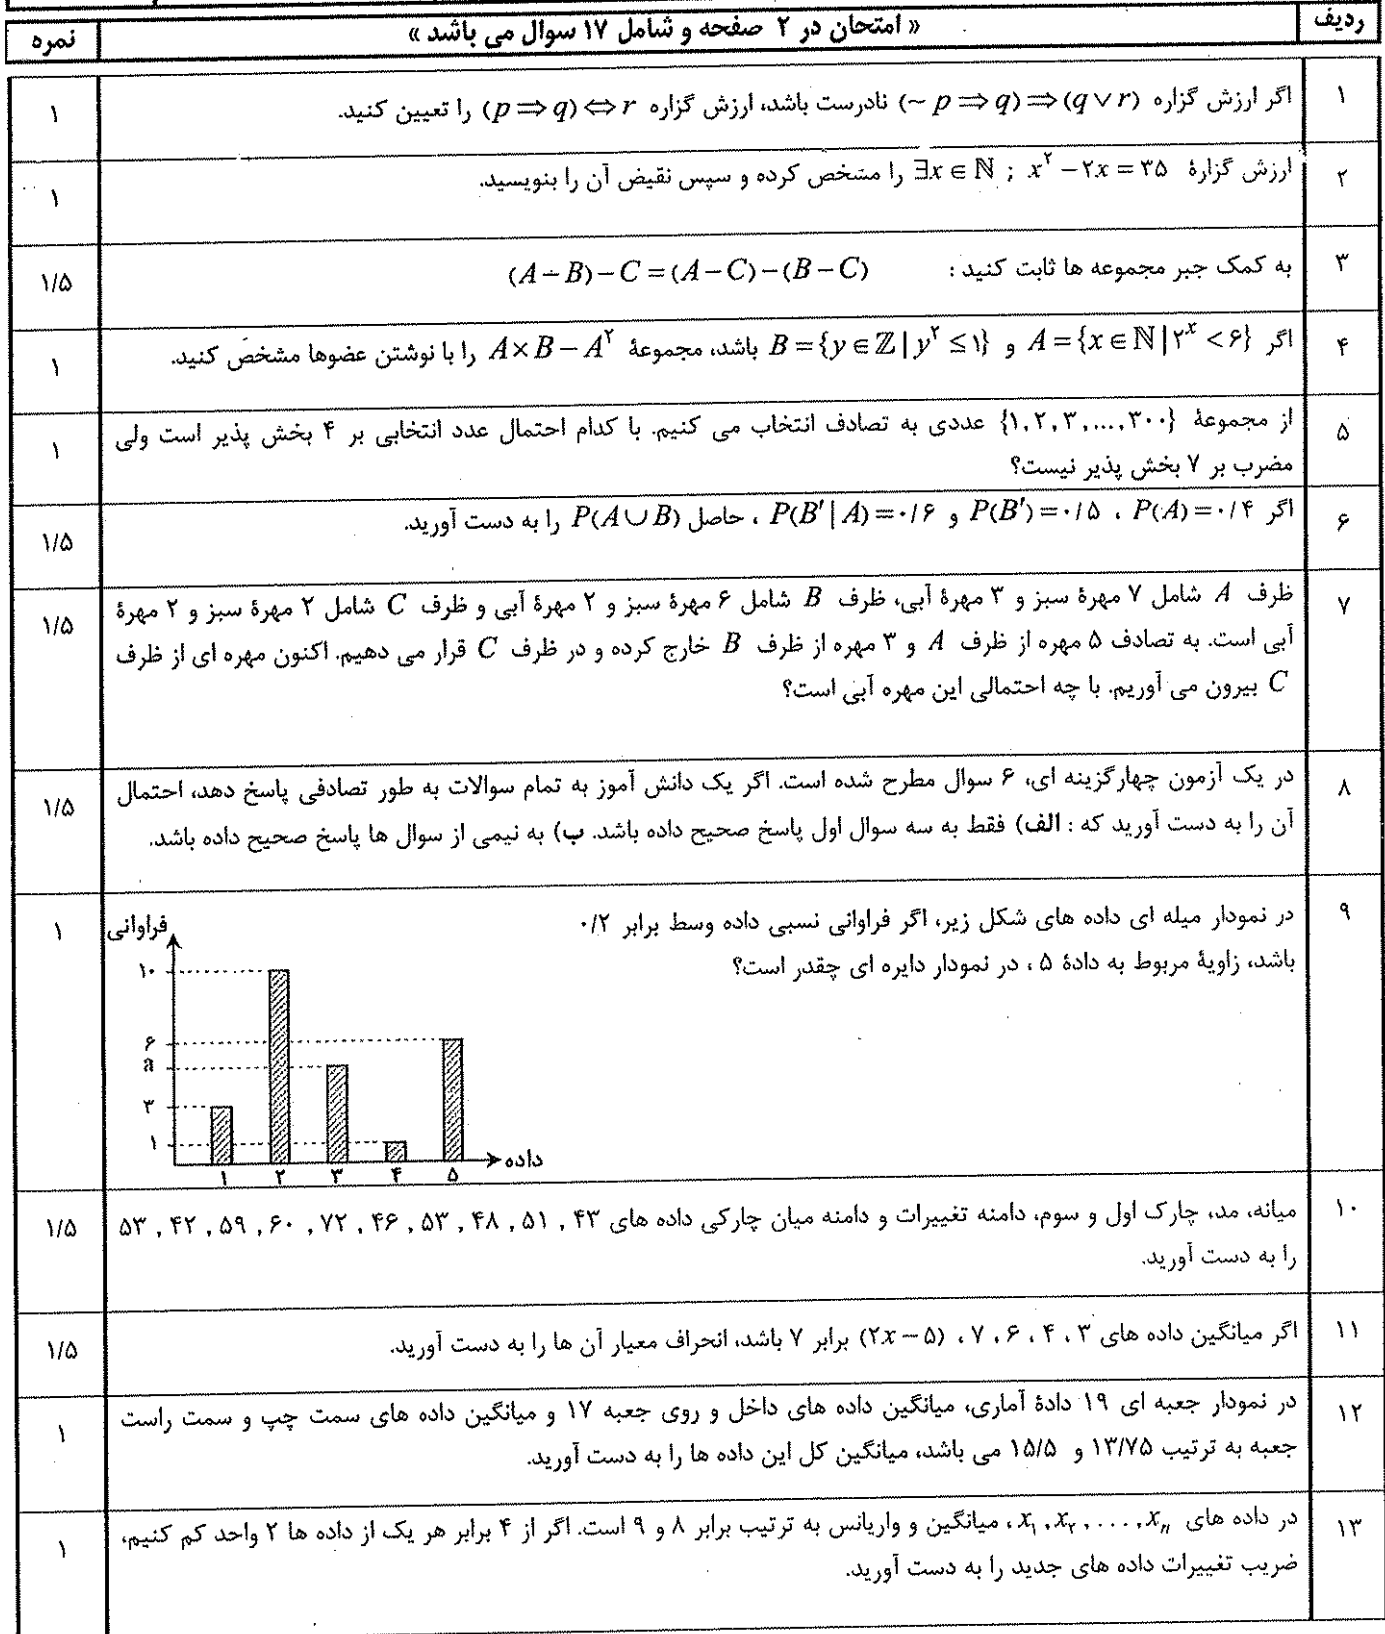 ردیف
« امتحان در ۲ صفحه و شامل ۱۷ سوال می باشد »
نمره
۱
اگر ارزش گزاره (∼ p ⇒ q) ⇒ (q ∨ r) نادرست باشد، ارزش گزاره (p ⇒ q) ⇔ r را تعیین کنید.
۱
۲
ارزش گزارۀ ∃x ∈ ℕ ; x^۲ − ۲x = ۳۵ را مشخص کرده و سپس نقیض آن را بنویسید.
۱
۳
به کمک جبر مجموعه ها ثابت کنید : (A − B) − C = (A − C) − (B − C)
۱/۵
۴
اگر A = {x ∈ ℕ | ۲^x < ۶} و B = {y ∈ ℤ | y^۲ ≤ ۱} باشد، مجموعۀ A × B − A^۲ را با نوشتن عضوها مشخص کنید.
۱
۵
از مجموعۀ {۱, ۲, ۳, ..., ۳۰۰} عددی به تصادف انتخاب می کنیم. با کدام احتمال عدد انتخابی بر ۴ بخش پذیر است ولی
مضرب بر ۷ بخش پذیر نیست؟
۱
۶
اگر P(A) = ۰/۴ ، P(B′) = ۰/۵ و P(B′ | A) = ۰/۶ ، حاصل P(A ∪ B) را به دست آورید.
۱/۵
۷
ظرف A شامل ۷ مهرۀ سبز و ۳ مهرۀ آبی، ظرف B شامل ۶ مهرۀ سبز و ۲ مهرۀ آبی و ظرف C شامل ۲ مهرۀ سبز و ۲ مهرۀ
آبی است. به تصادف ۵ مهره از ظرف A و ۳ مهره از ظرف B خارج کرده و در ظرف C قرار می دهیم. اکنون مهره ای از ظرف
C بیرون می آوریم. با چه احتمالی این مهره آبی است؟
۱/۵
۸
در یک آزمون چهارگزینه ای، ۶ سوال مطرح شده است. اگر یک دانش آموز به تمام سوالات به طور تصادفی پاسخ دهد، احتمال
آن را به دست آورید که : الف) فقط به سه سوال اول پاسخ صحیح داده باشد. ب) به نیمی از سوال ها پاسخ صحیح داده باشد.
۱/۵
۹
در نمودار میله ای داده های شکل زیر، اگر فراوانی نسبی داده وسط برابر ۰/۲
باشد، زاویۀ مربوط به دادۀ ۵ ، در نمودار دایره ای چقدر است؟
۱
فراوانی
۱۰
۶
a
۳
۱
۱ ۲ ۳ ۴ ۵
داده
۱۰
میانه، مد، چارک اول و سوم، دامنه تغییرات و دامنه میان چارکی داده های ۴۳ , ۵۱ , ۴۸ , ۵۳ , ۴۶ , ۷۲ , ۶۰ , ۵۹ , ۴۲ , ۵۳
را به دست آورید.
۱/۵
۱۱
اگر میانگین داده های ۳ ، ۴ ، ۶ ، ۷ ، (۲x − ۵) برابر ۷ باشد، انحراف معیار آن ها را به دست آورید.
۱/۵
۱۲
در نمودار جعبه ای ۱۹ دادۀ آماری، میانگین داده های داخل و روی جعبه ۱۷ و میانگین داده های سمت چپ و سمت راست
جعبه به ترتیب ۱۳/۷۵ و ۱۵/۵ می باشد، میانگین کل این داده ها را به دست آورید.
۱
۱۳
در داده های x₁ , x₂ , . . . , xₙ ، میانگین و واریانس به ترتیب برابر ۸ و ۹ است. اگر از ۴ برابر هر یک از داده ها ۲ واحد کم کنیم،
ضریب تغییرات داده های جدید را به دست آورید.
۱